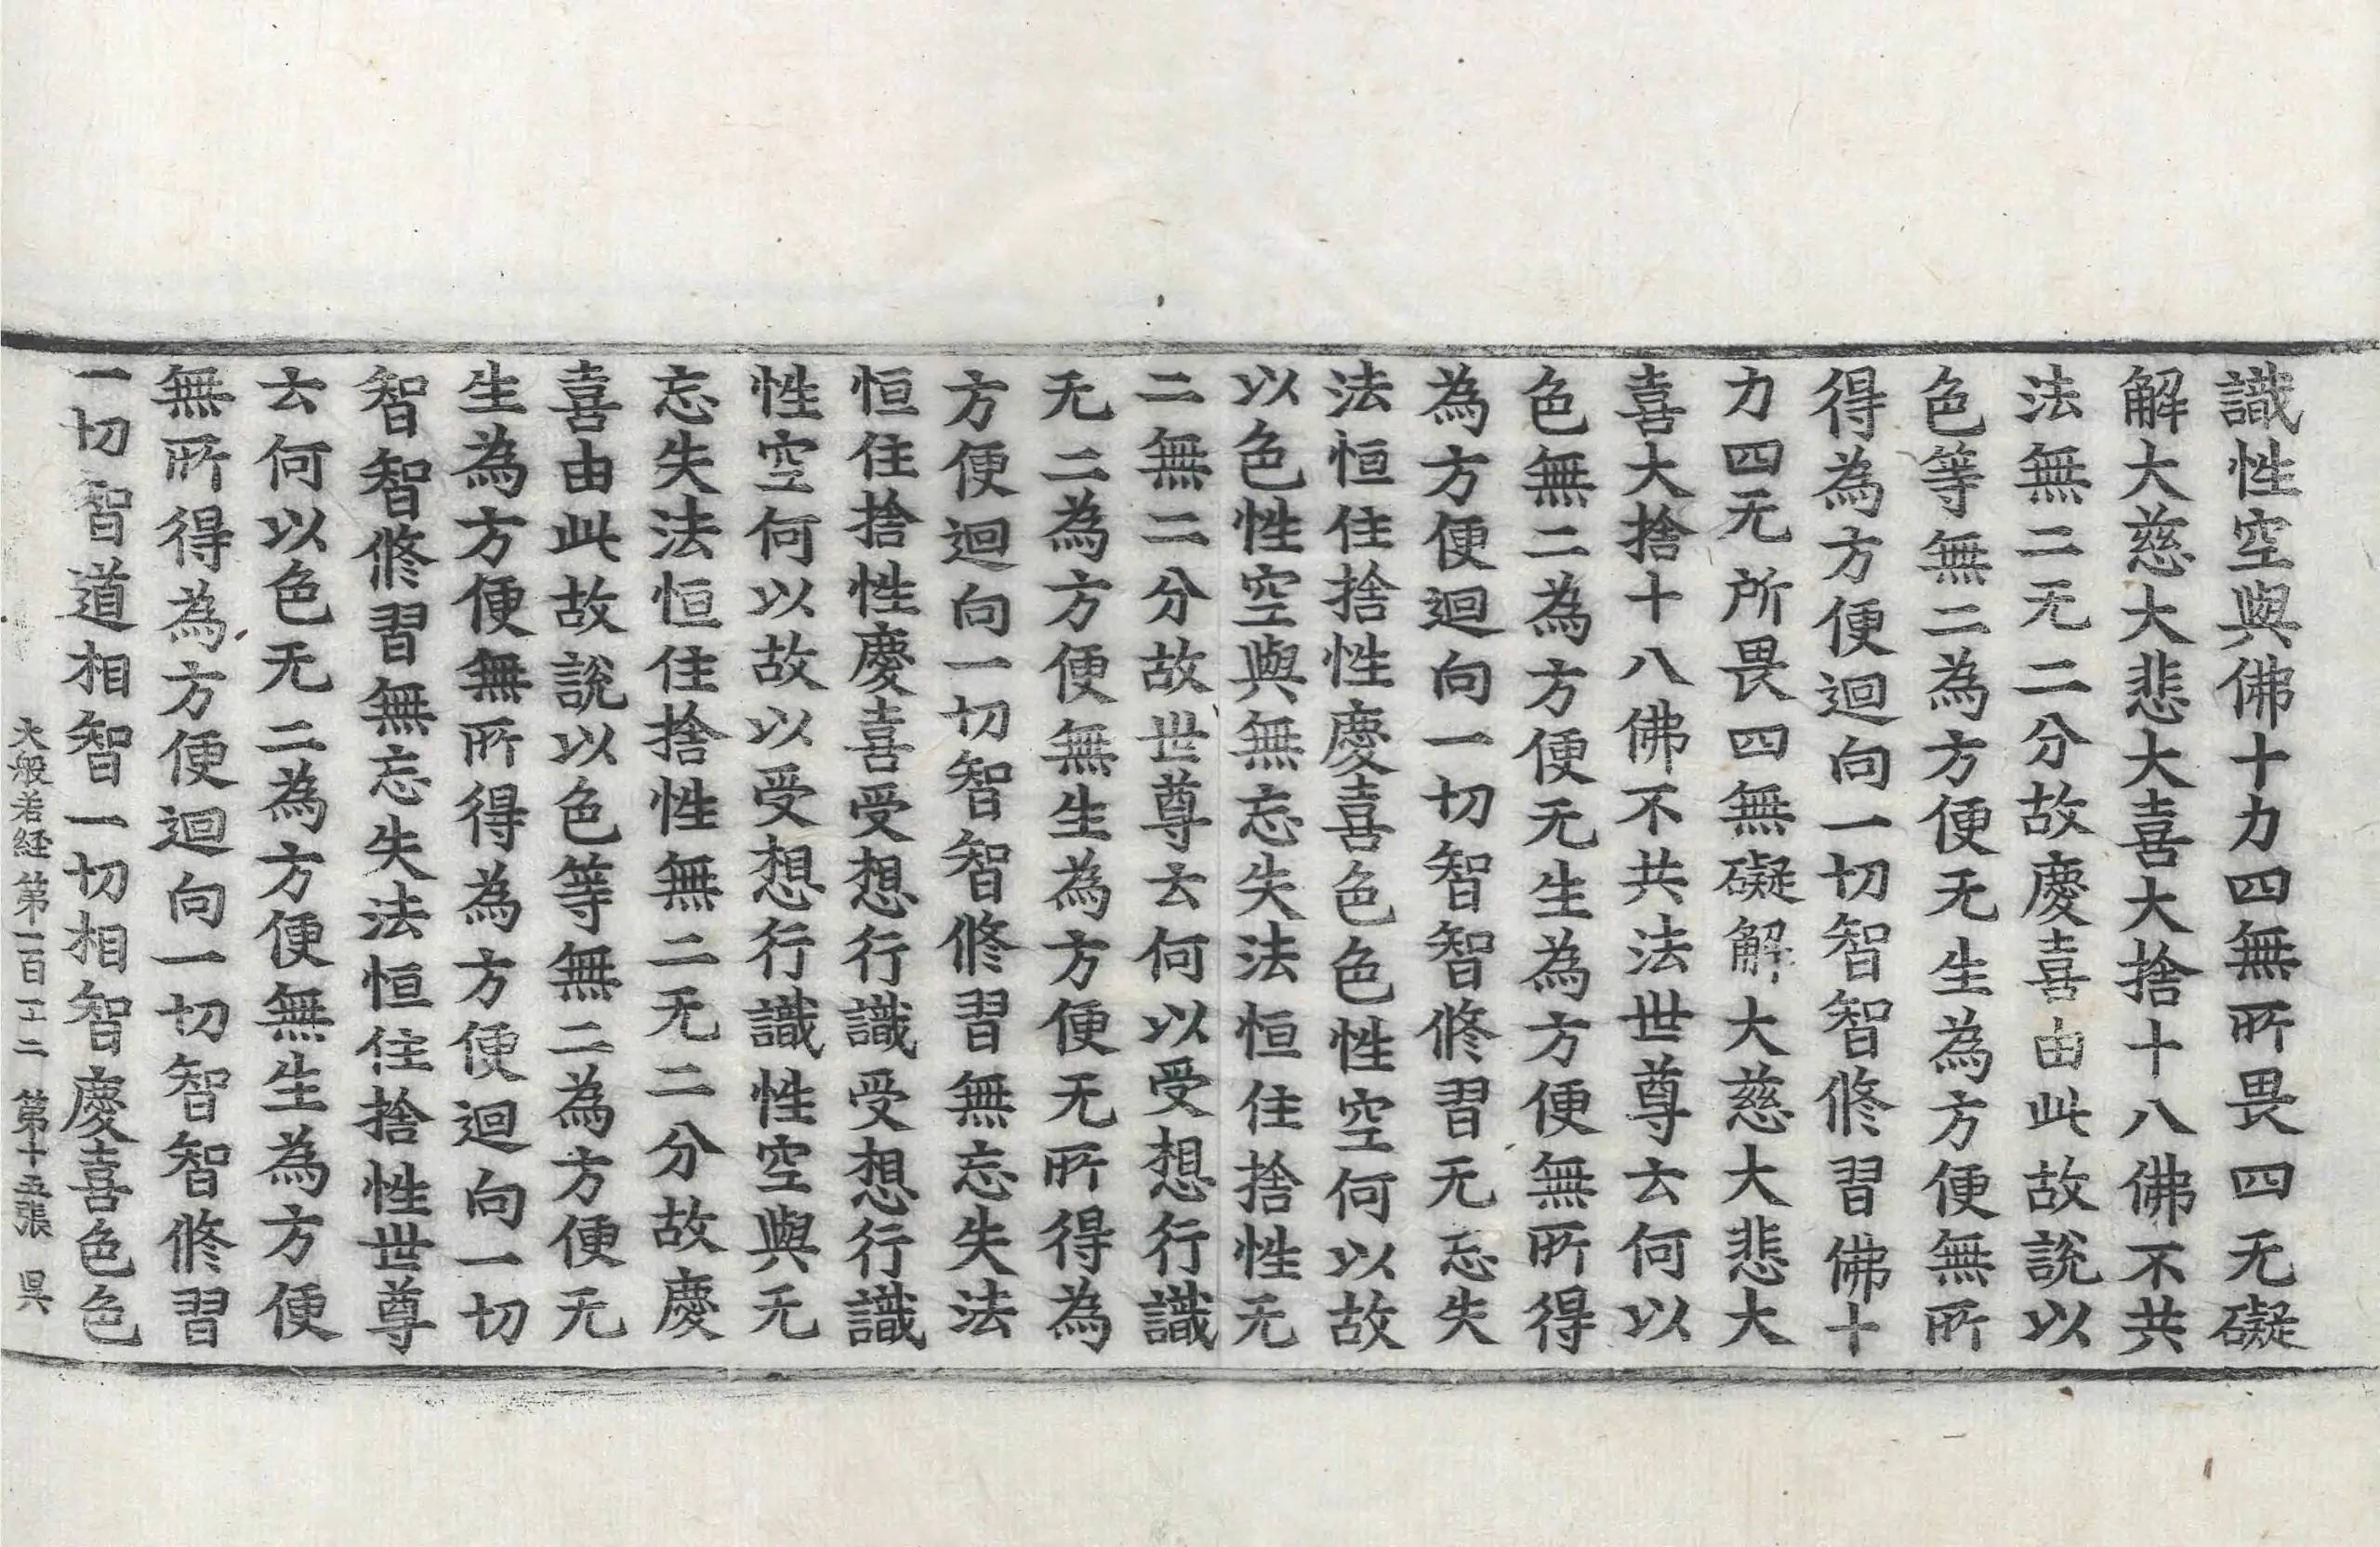 識性空與佛十力四無所畏四无礙
解大慈大悲大喜大捨十八佛不共
法無二无二分故慶喜由此故說以
色等無二為方便无生為方便無所
得為方便迴向一切智智修習佛十
力四无所畏四無礙解大慈大悲大
喜大捨十八佛不共法世尊云何以
色無二為方便无生為方便無所得
為方便迴向一切智智修習无忘失
法恒住捨性慶喜色色性空何以故
以色性空與無忘失法恒住捨性无
二無二分故世尊云何以受想行識
无二為方便無生為方便无所得為
方便迴向一切智智修習無忘失法
恒住捨性慶喜受想行識受想行識
性空何以故以受想行識性空與无
忘失法恒住捨性無二无二分故慶
喜由此故說以色等無二為方便无
生為方便無所得為方便迴向一切
智智修習無忘失法恒住捨性世尊
云何以色无二為方便無生為方便
無所得為方便迴向一切智智修習
一切智道相智一切相智慶喜色色
大般若経第一百二 第十五張 㫷